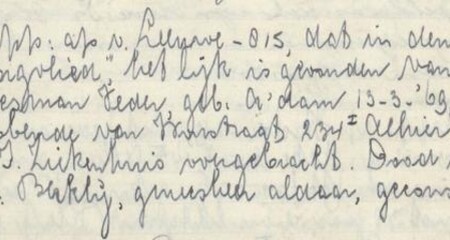 opp: ap v. Leeuwe - 815, dat in den
ngvlied", het lijk is gevonden van
esman Veder, geb. A'dam 13-3-'69
bende van Voorstraat 234 I Alhier
Ziekenhuis overgebracht. Dood
geneesheer aldaar, gecons